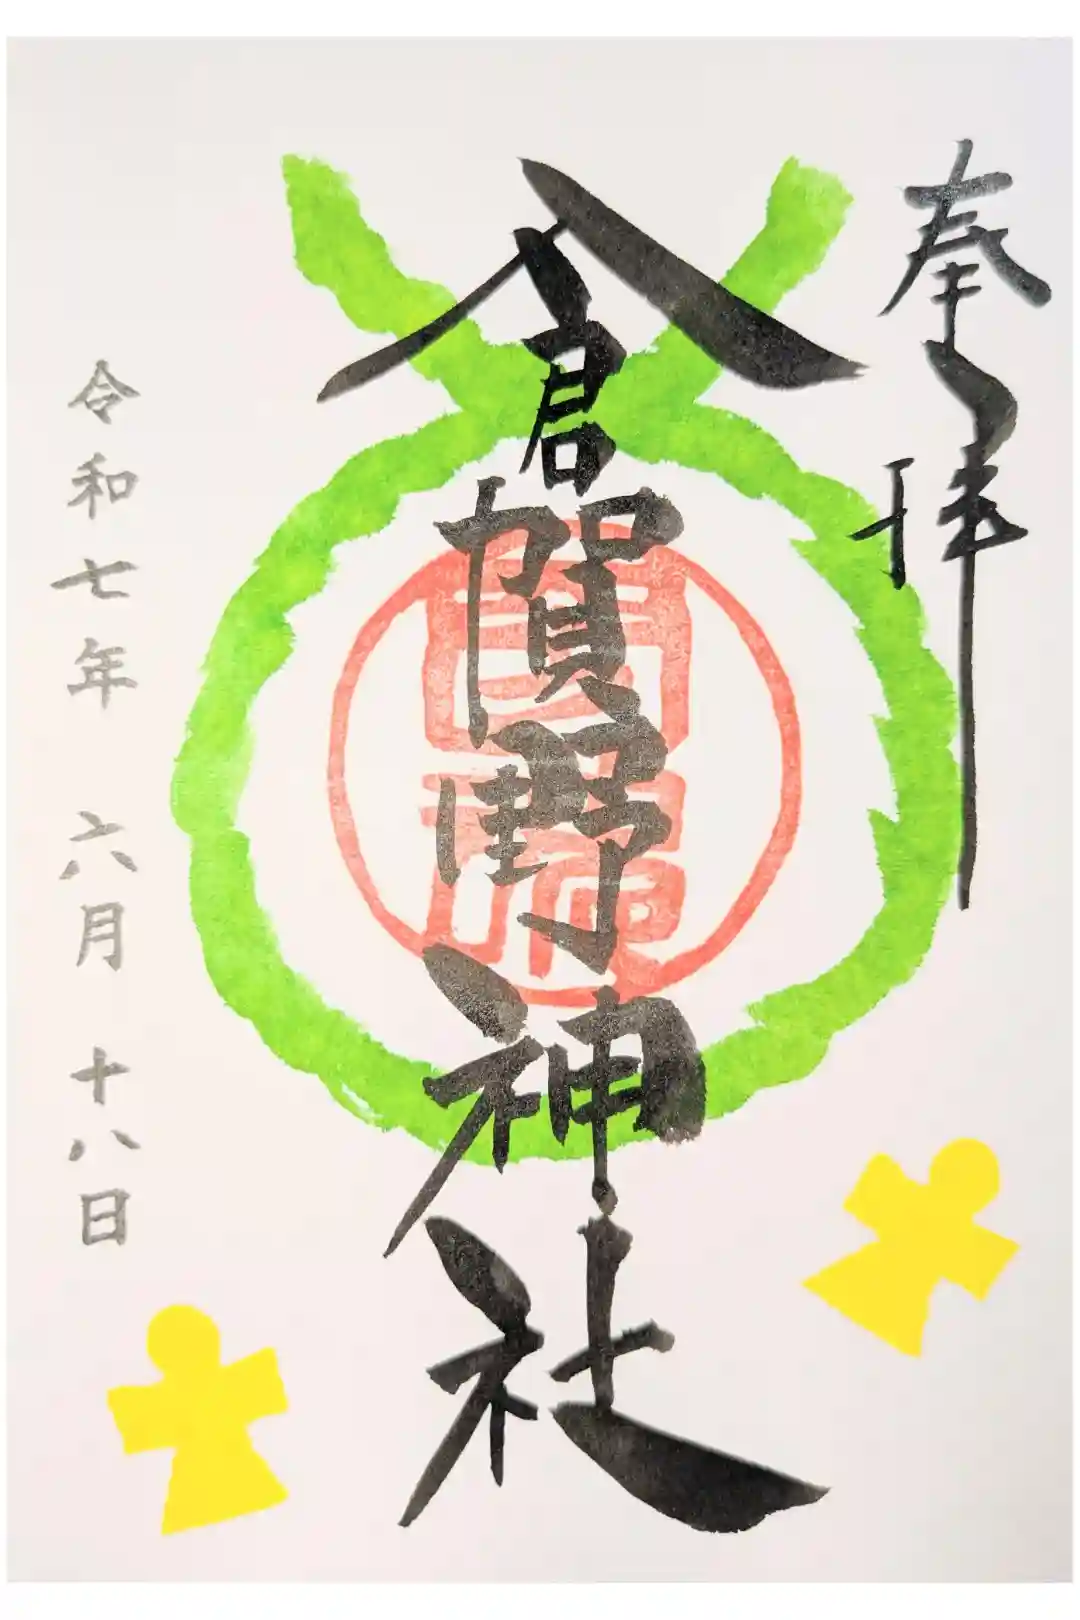 奉拝
倉賀野神社
令和七年 六月 十八日